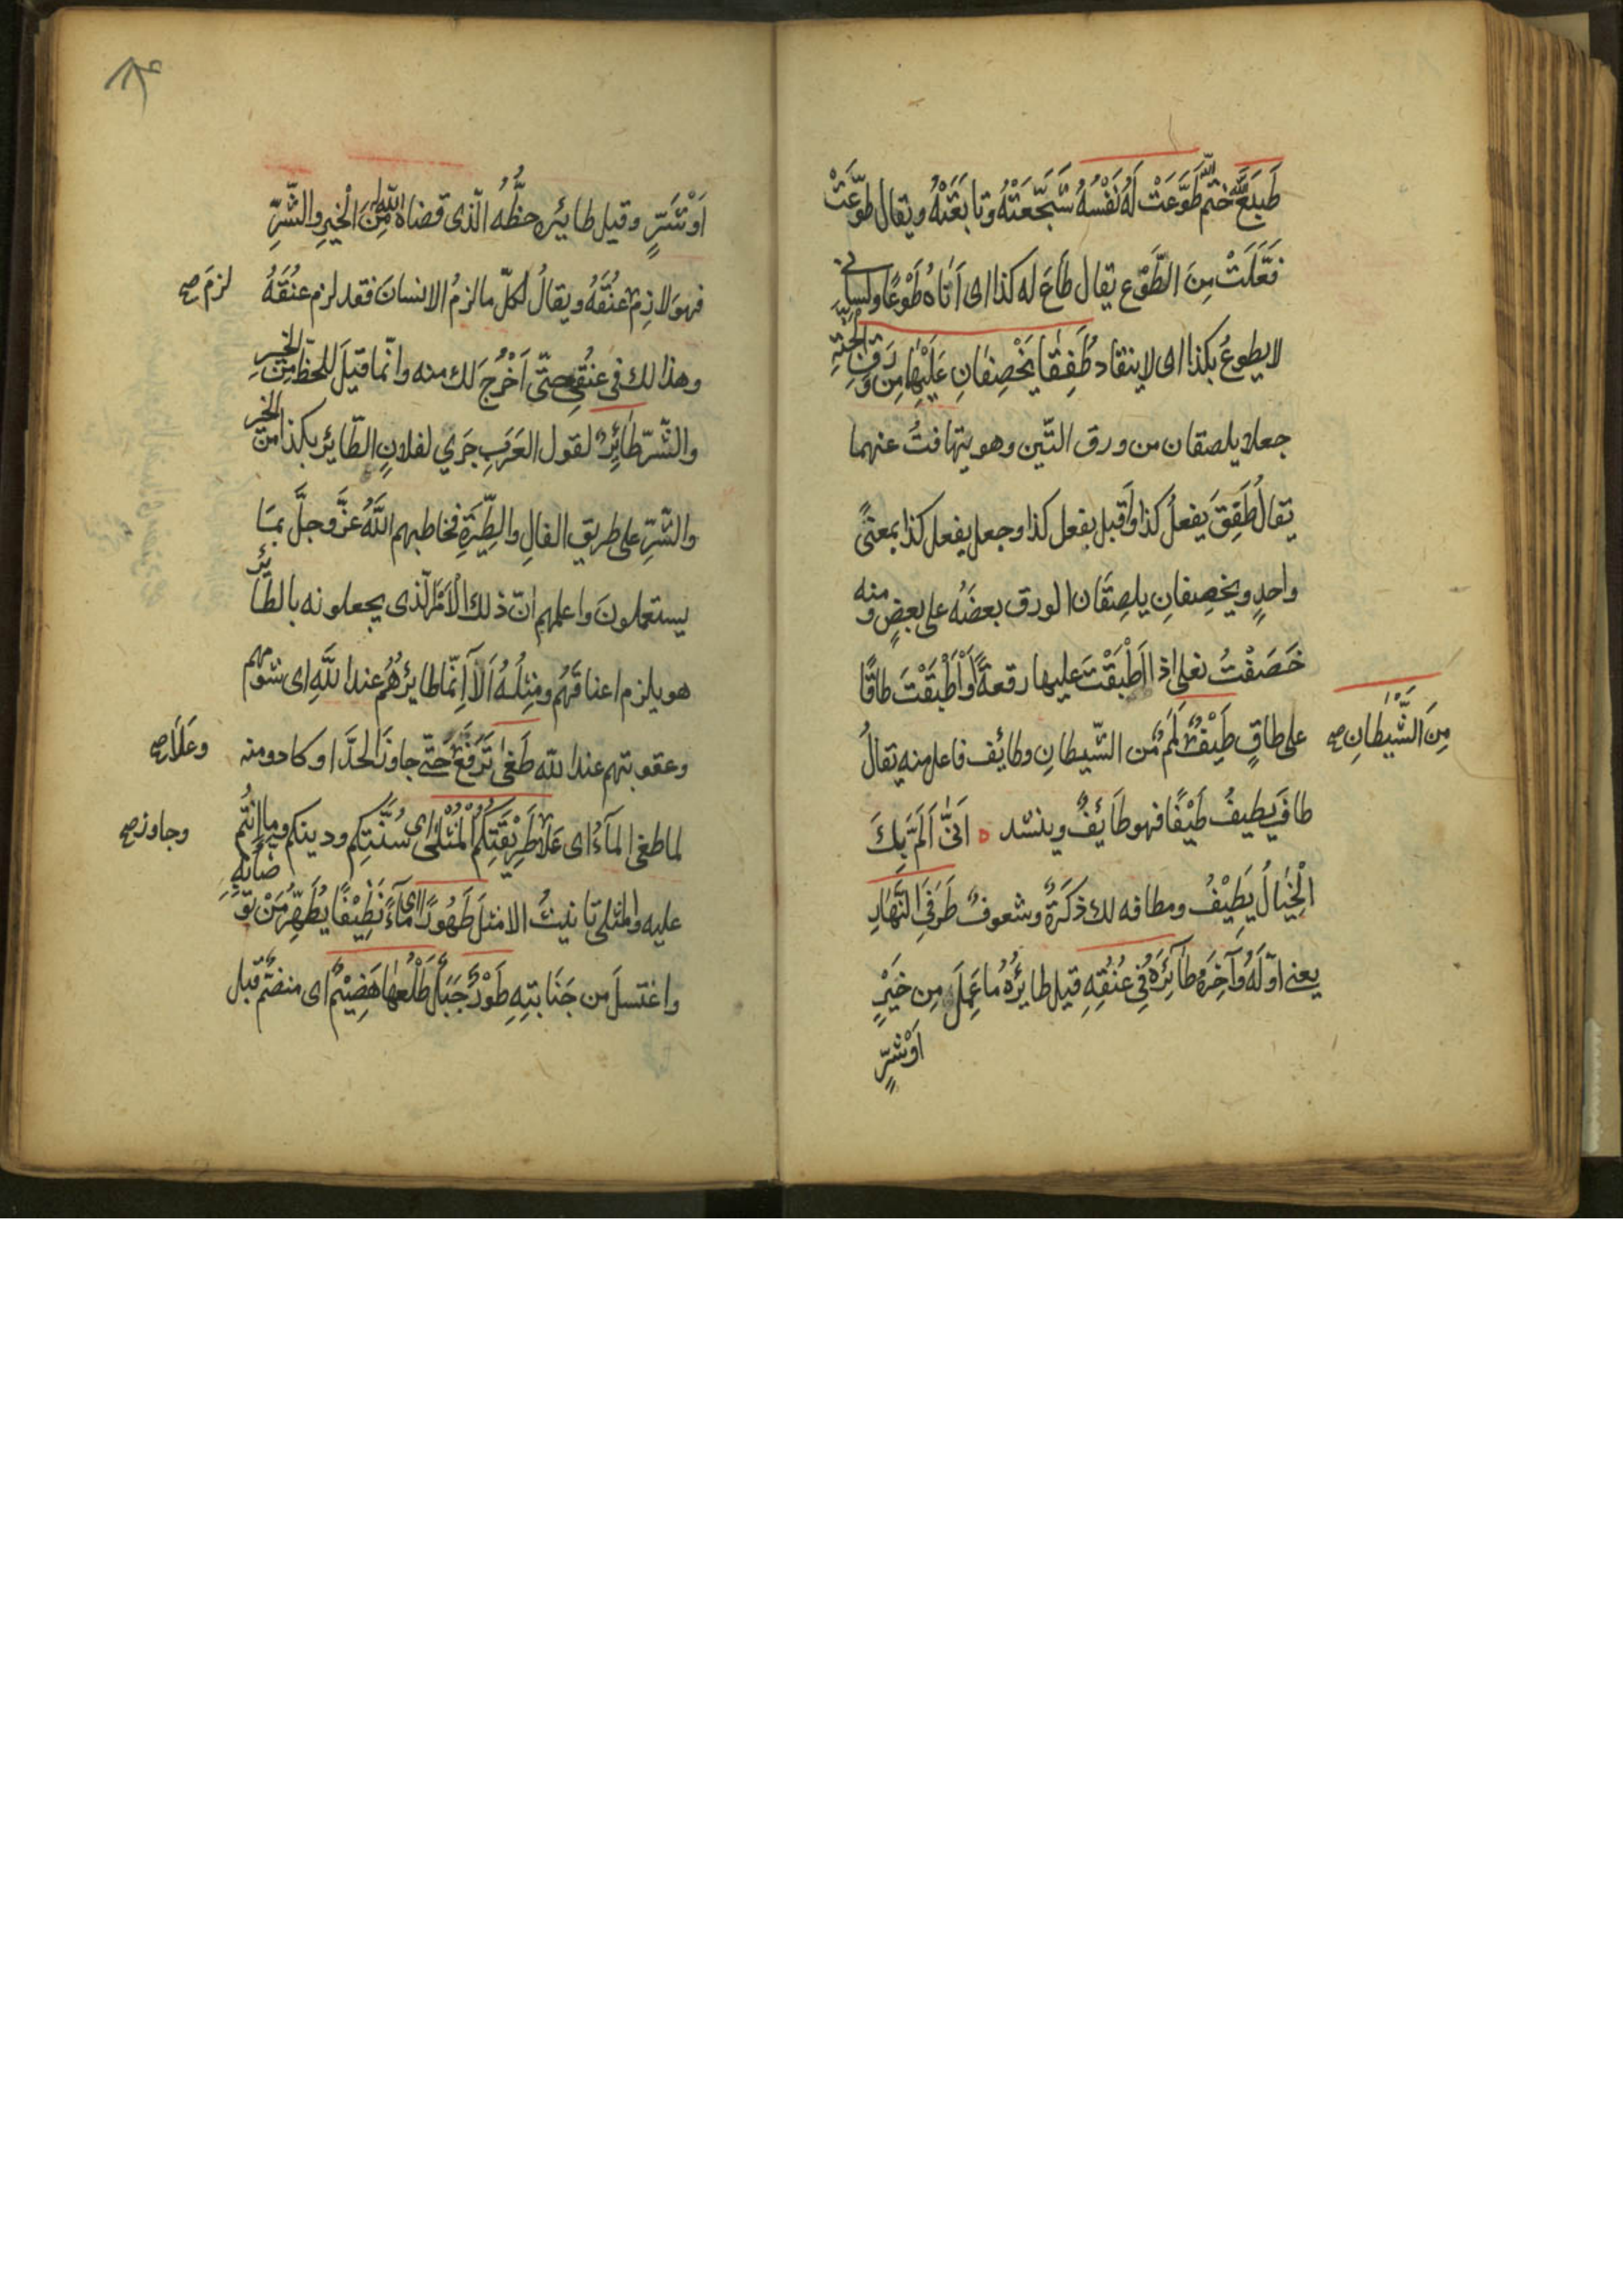 طَبَعَ اللّٰهُ ختم اللّٰه طَوَّعَتْ لَهُ نَفْسُهُ شَجَّعَتْهُ وتابَعَتْهُ ويقال طَوَّعَتْ
فَعَّلَتْ مِنَ الطَّوْعِ يقال طَاعَ له كذا اى اَتاهُ طَوْعًا ولسانى
لا يطوعُ بكذا اى لا ينقاد طَفِقٰا يَخْصِفٰانِ عَلَيْهِمٰا مِن وَرَقِ الْجَنَّةِ
جعلا يلصقان من ورق التّين وهو يتهافتُ عنهما
يقالُ طَفِقَ يَفعلُ كذا واَقبل يفعل كذا وجعل يفعل كذا بمعنًى
واحدٍ ويخصِفانِ يلصِقَان الورق بعضَهُ على بعضٍ ومنه
خَصَفْتُ نعلى اذا اَطْبَقْتَ عليها رقعةً اَوْ اَطْبَقْتَ طاقًا
على طاقٍ طَيْفٌ لَمَمٌ من الشّيطانِ وطائف فاعل منه يقالُ
مِنَ الشَّيْطٰانِ صح
طافَ يَطيفُ طَيْفًا فهو طَائِفٌ وينشد ه اَنّٰى اَلَمَّ بِكَ
الْخَيٰالُ يَطِيْفُ ومطافه لك ذكرَةٌ وشعوفٌ طَرَفَىِ النَّهٰارِ
يعنى اوّلَهُ وَآخِرَهُ طٰآئِرَهُ فِى عُنُقِهِ قيل طايرُهُ ما عَمِلَ مِن خَيْرٍ
اَوْ شَرٍّ
اَوْ شَرٍّ وقيل طايره حظُّهُ الّذى قضاه اللّٰه مِنَ الْخَيْرِ والشَّرِّ
فهو لازِمٌ عنُقَهُ ويقالُ لكلّ ما لزمُ الانسانَ فقد لزم عنُقَهُ
لزمَ صح
وهذا لك فى عنقى حتّى اَخْرُجَ لك منه وانّما قيَلَ للحظّ مِنَ الخير
والشّرّ طَائِرٌ لقول العَرَبِ جَرَي لفلانٍ الطّايرُ بكذا مِنَ الخير
والشَّرِّ على طريق الفالِ والطِّيَرَةِ فخاطبهم اللّٰهُ عَزَّ وجلَّ بمَا
يستعملونَ واعلمهم انّ ذلك الاَمْرَ الّذى يجعلونه بالطائر
هو يلزم اعناقَهُم ومِثْلُهُ اَلآ اِنَّما طايرُهُمْ عند اللّٰهِ اى شومهم
وعقوبتهم عند اللّٰه طَغٰى تَرَفَّعَ حَتّٰى جاوزَ الحَدَّ او كاد ومنه
وعَلَا صح
لما طغى المآءُ اى عَلَا طَرِيْقَتِكُمُ الْمُثْلٰى اى سُنَّتِكم ودينكم وما انتُم
وجاوز صح
عليه والمثلى تانيثُ الامثل طَهُورًا اى مآءً نَظِيْفًا يُطَهِّرُ مَنْ تَوَضَّأَ بِهِ
واغتسلَ من جَنَابتِهِ طَوْدٌ جَبَلٌ طَلْعُهٰا هَضِيْمٌ اى منضمٌّ قبل